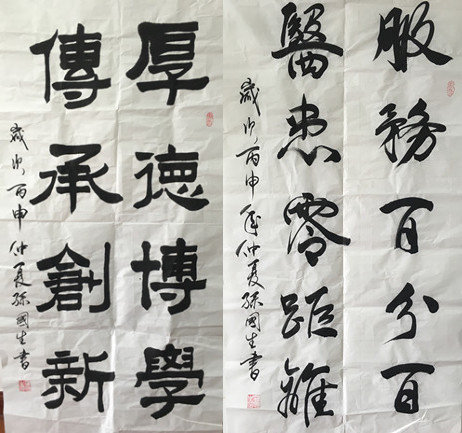 厚德博學
傳承創新
歲次丙申仲夏孫國生書
服務百分百
醫患零距離
歲次丙申年仲夏孫國生書